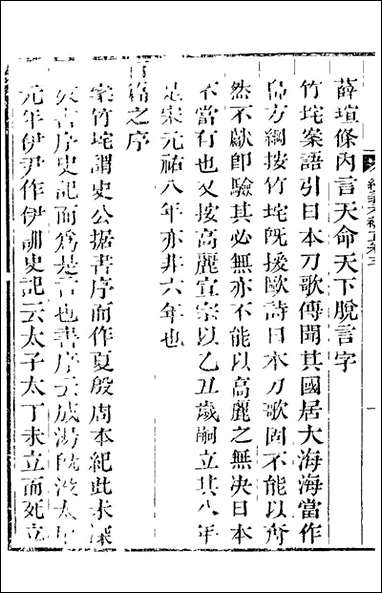 經義考補正卷三
薛瑄條內言天命天下脫言字
竹垞案語引日本刀歌傳聞其國居大海海當作
島方綱按竹垞既援歐詩日本刀歌固不能以奝
然不獻即驗其必無亦不能以高麗之無決日本
不當有也又按高麗宣宗以乙丑歲嗣立其八年
是宋元祐八年亦非六年也
百篇之序
案竹垞謂史公据書序而作夏殷周本紀此未深
攷書序史記而爲是言也書序云成湯既沒太甲
元年伊尹作伊訓史記云太子太丁未立而死立